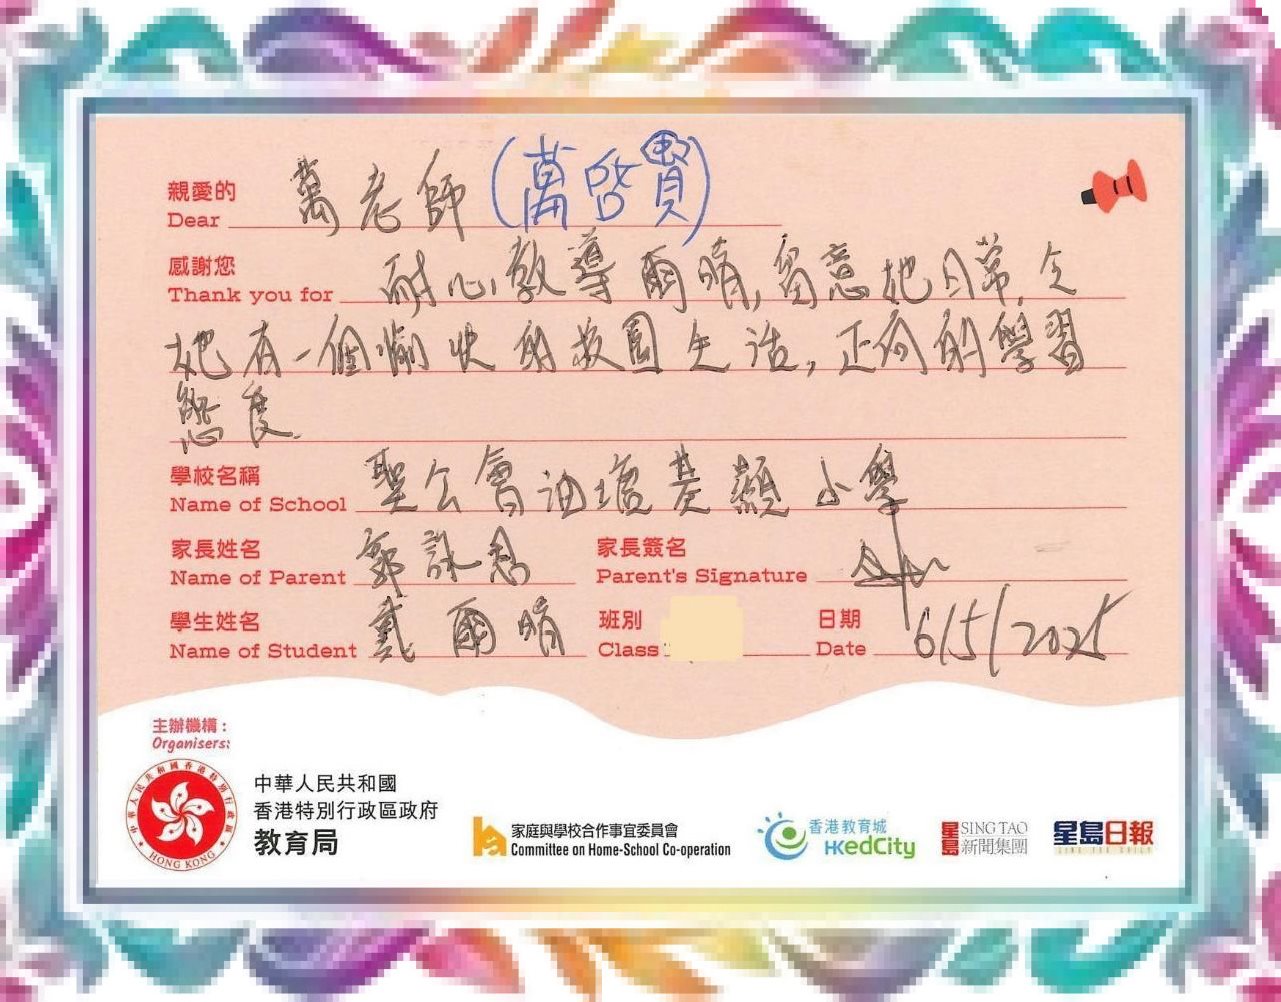 親愛的
Dear 萬老師 (萬啓賢)
感謝您
Thank you for 耐心教導爾晴, 留意她日常, 令
她有一個愉快的校園生活, 正向的學習
態度.
學校名稱
Name of School 聖公會油塘基顯小學
家長姓名 家長簽名
Name of Parent 郭詠恩 Parent's Signature
學生姓名 班別 日期
Name of Student 戴爾晴 Class Date 6/5/2025
主辦機構:
Organisers:
中華人民共和國香港特別行政區
HONG KONG
中華人民共和國
香港特別行政區政府
教育局
家庭與學校合作事宜委員會
Committee on Home-School Co-operation
香港教育城
HKedCity
星島 SING TAO
新聞集團
星島日報
SING TAO DAILY